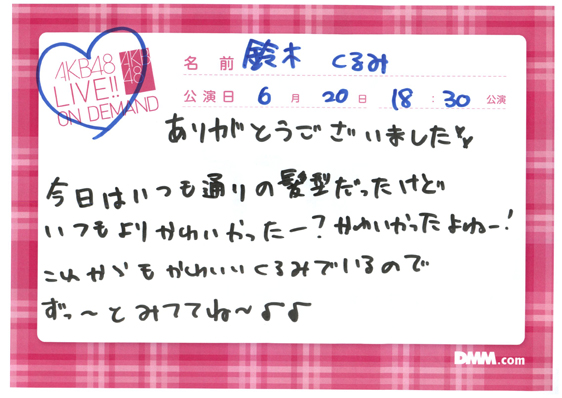 AKB48
LIVE!!
ON DEMAND
AKB
48
名前 鈴木 くるみ
公演日 6月20日 18:30公演
ありがとうございました
今日はいつも通りの髪型だったけど
いつもよりかわいかったー?かわいかったよねー!
これからもかわいいくるみでいるので
ずっ〜とみつててね〜♪♪
DMM.com